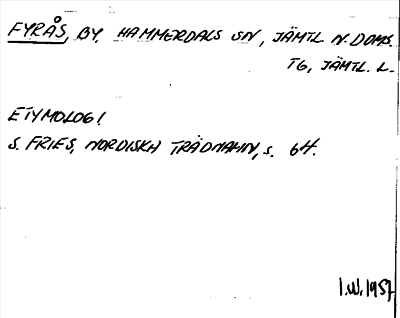 FYRÅS, BY, HAMMERDALS SN, JÄMTL. N. DOMS.
TG, JÄMTL. L.
ETYMOLOGI
S. FRIES, NORDISKA TRÄDNAMN, s. 64.
I.W. 1957